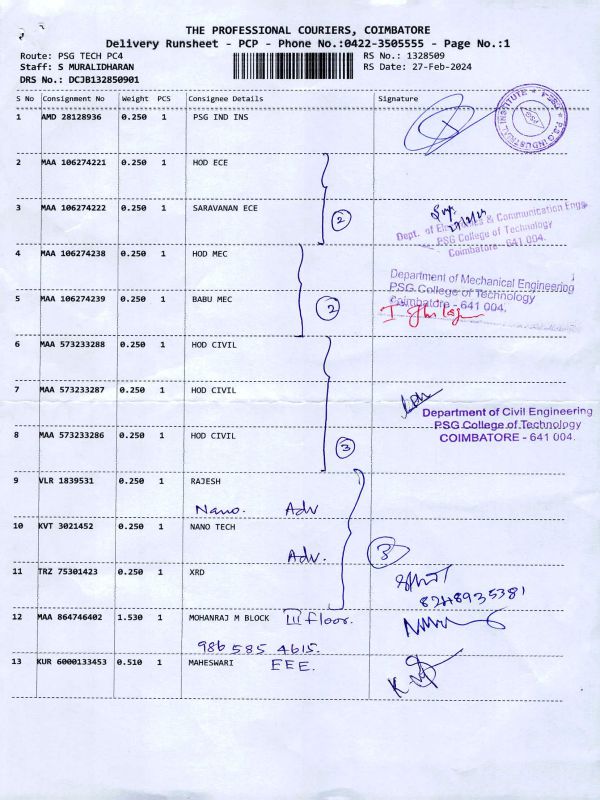 THE PROFESSIONAL COURIERS, COIMBATORE
Delivery Runsheet - PCP - Phone No.:0422-3505555 - Page No.:1
Route: PSG TECH PC4 RS No.: 1328509
Staff: S MURALIDHARAN RS Date: 27-Feb-2024
DRS No.: DCJB132850901
S No Consignment No Weight PCS Consignee Details Signature
1 AMD 28128936 0.250 1 PSG IND INS
P.S.G INDUSTRIAL INSTITUTE
2 MAA 106274221 0.250 1 HOD ECE
3 MAA 106274222 0.250 1 SARAVANAN ECE
2
Dept. of Electronics & Communication Engg
PSG College of Technology
Coimbatore- 641 004.
4 MAA 106274238 0.250 1 HOD MEC
Department of Mechanical Engineering
PSG College of Technology
Coimbatore - 641 004,
5 MAA 106274239 0.250 1 BABU MEC
2
6 MAA 573233288 0.250 1 HOD CIVIL
7 MAA 573233287 0.250 1 HOD CIVIL
Department of Civil Engineering
PSG College of Technology
COIMBATORE - 641 004.
8 MAA 573233286 0.250 1 HOD CIVIL
3
9 VLR 1839531 0.250 1 RAJESH
Nano. Adv
10 KVT 3021452 0.250 1 NANO TECH
Adv. 3
11 TRZ 75301423 0.250 1 XRD
8248935381
12 MAA 864746402 1.530 1 MOHANRAJ M BLOCK III floor.
986 585 4615.
13 KUR 6000133453 0.510 1 MAHESWARI EEE.